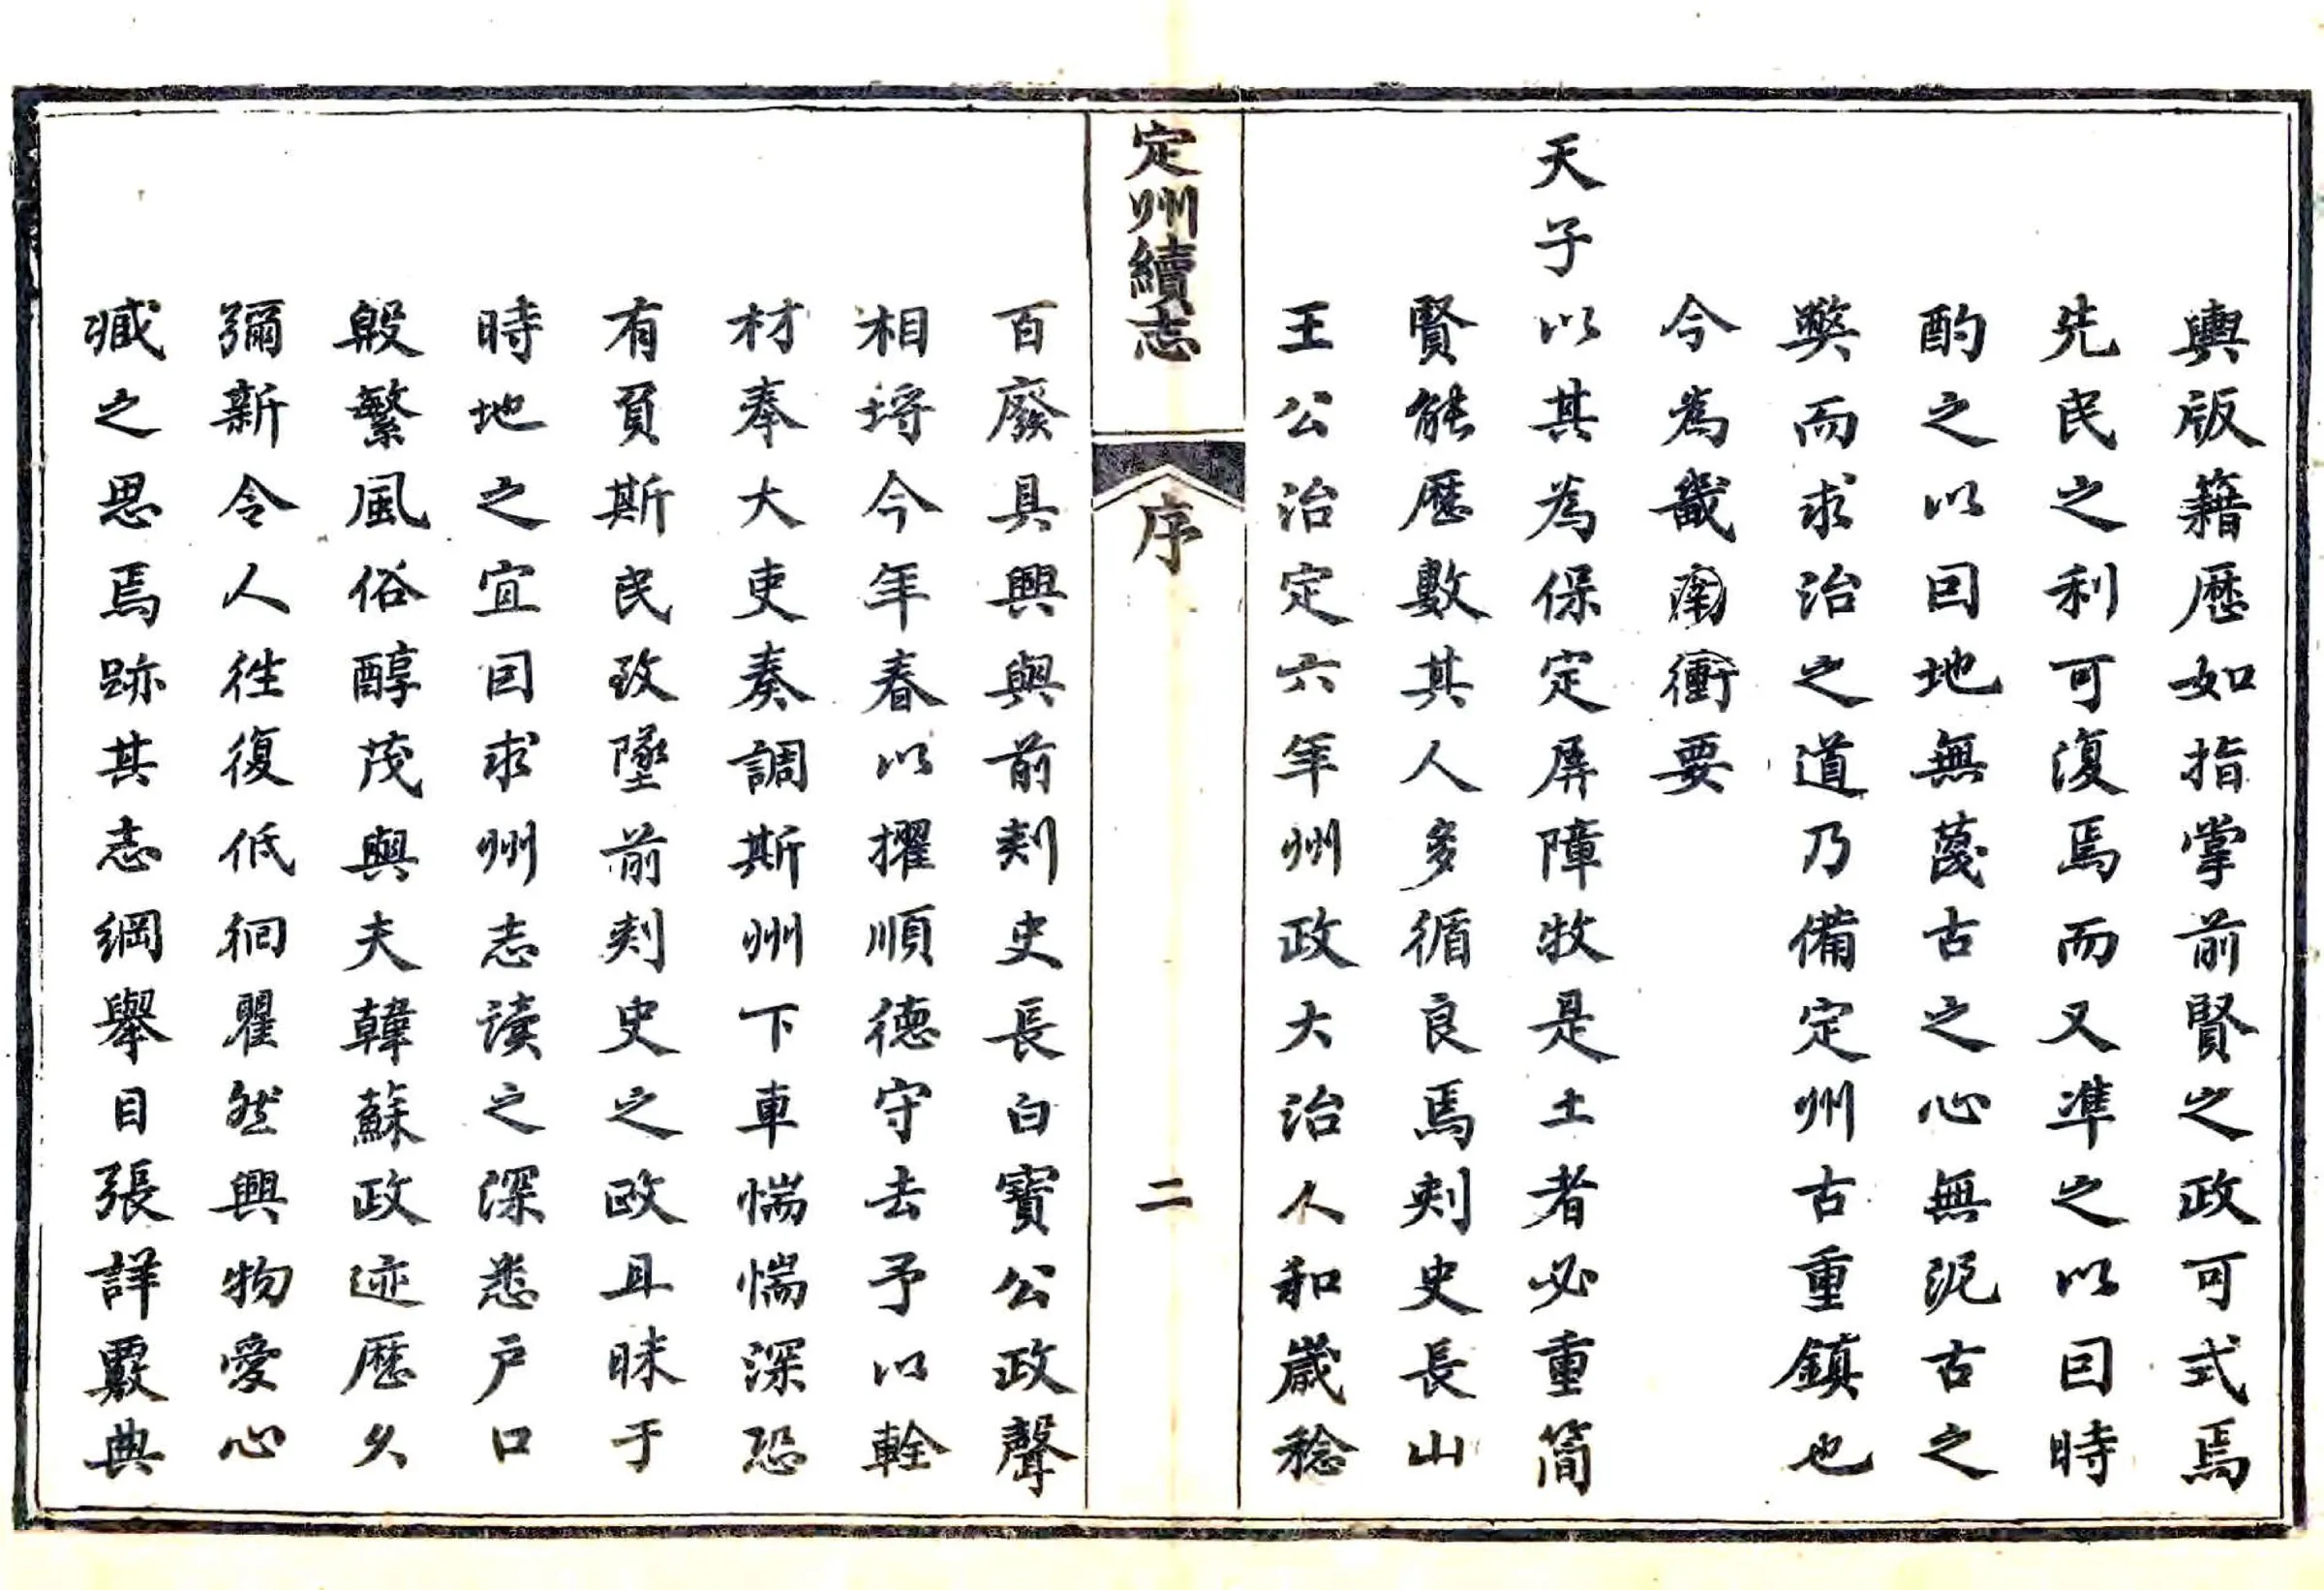 輿版籍歷如指掌前賢之政可式焉
先民之利可復焉而又準之以因時
酌之以因地無蔑古之心無泥古之
弊而求治之道乃備定州古重鎮也
今為畿南衝要
天子以其為保定屏障牧是土者必重簡
賢能歷數其人多循良焉刺史長山
王公治定六年州政大治人和歲稔
定州續志
序
二
百廢具興與前刺史長白寶公政聲
相埒今年春以擢順德守去予以輇
材奉大吏奏調斯州下車惴惴深恐
有負斯民致墜前刺史之政且昧于
時地之宜因求州志讀之深悉戶口
殷繁風俗醇茂與夫韓蘇政迹歷久
彌新令人徃復低徊瞿然興物愛心
臧之思焉跡其志綱舉目張詳覈典